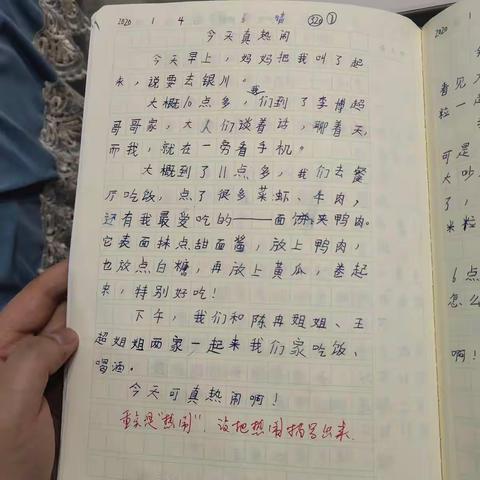 2020 1 4 晴 320 ①
今天真热闹
今天早上，妈妈把我叫了起
来，说要去银川。
大概10点多，我们到了李博超
哥哥家，大人们谈着话，聊着天，
而我，就在一旁看手机。
大概到了11点多，我们去餐
厅吃饭，点了很多菜虾、牛肉，
还有我最爱吃的——面饼夹鸭肉。
它表面抹点甜面酱，放上鸭肉，
也放点白糖，再放上黄瓜，卷起
来，特别好吃！
下午，我们和陈冉姐姐、王
超姐姐两家一起来我们家吃饭、
喝酒。
今天可真热闹啊！
重点是"热闹"，没把热闹描写出来.
2020
看见
粒一
可是
大吵
了，
米粒
6点
怎么
啊！